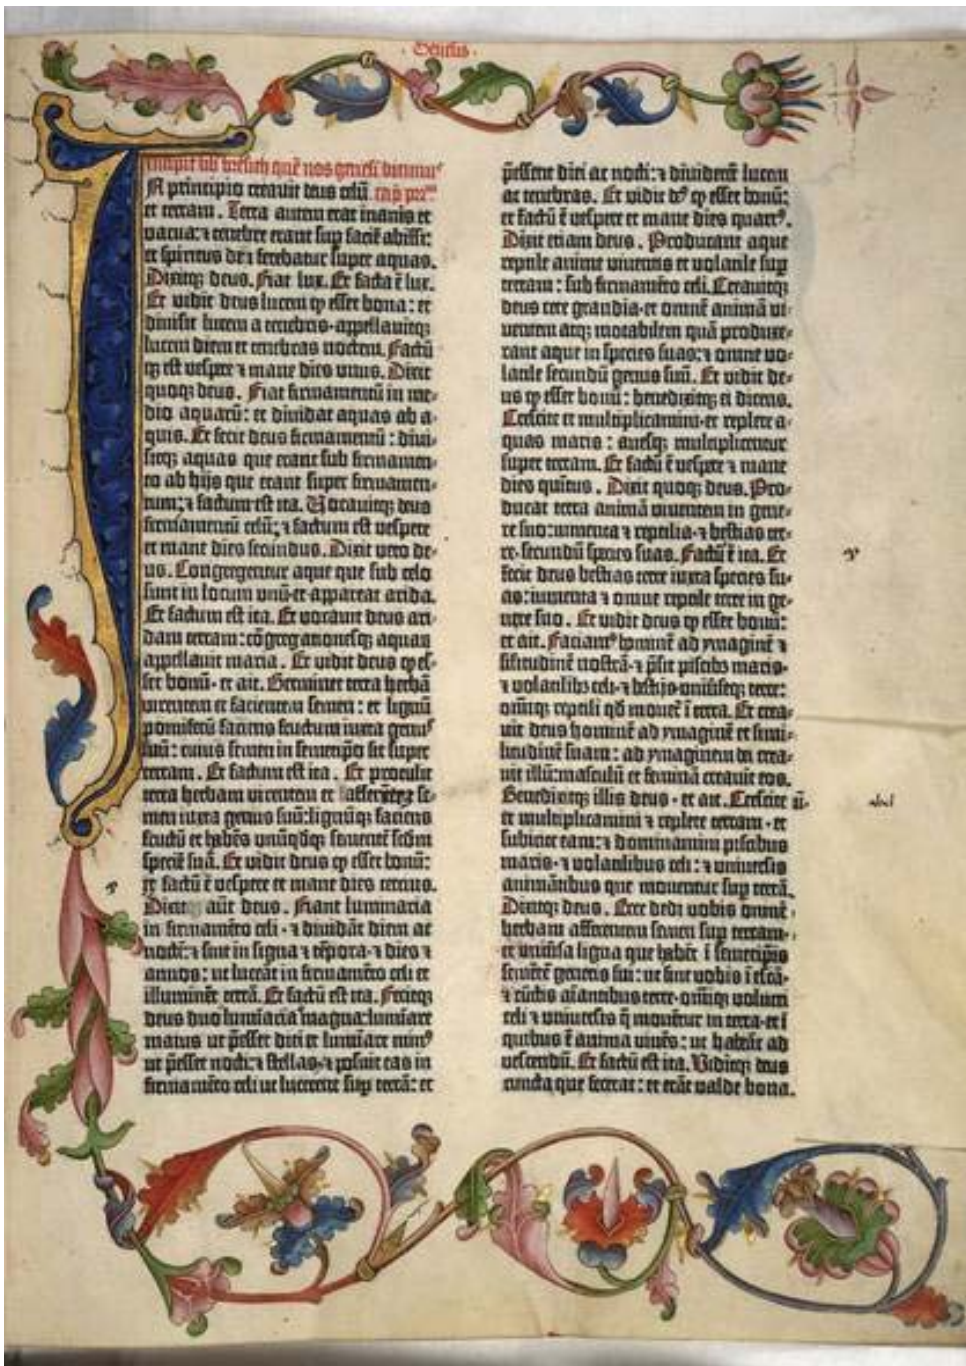 Genesis
Incipit lib̃ bresith quẽ nos genesi dicimꝰ
IN principio creavit deus celũ cap̃ primũ
et terram. Terra autem erat inanis et
vacua: ⁊ tenebre erant sup faciẽ abissi:
et spiritus dñi ferebatur super aquas.
Dixitqꝫ deus. Fiat lux. Et facta ẽ lux.
Et vidit deus lucem ꝙ esset bona: et
divisit lucem a tenebris· appellavitqꝫ
lucem diem et tenebras noctem. Factũ
qꝫ est vespere ⁊ mane dies unus. Dixit
quoqꝫ deus. Fiat firmamentũ in me-
dio aquarũ: et dividat aquas ab a-
quis. Et fecit deus firmamentũ: divi-
sitqꝫ aquas que erant sub firmamen-
to ab hijs que erant super firmamen-
tum: ⁊ factum est ita. Vocavitqꝫ deus
firmamentũ celũ: ⁊ factum est vespere
et mane dies secundus. Dixit vero de-
us. Congregentur aque que sub celo
sunt in locum unũ et appareat arida.
Et factum est ita. Et vocavit deus ari-
dam terram: cõgregationesqꝫ aquarũ
appellavit maria. Et vidit deus ꝙ es-
set bonũ· et ait. Germinet terra herbã
virentem et facientem semen: et lignũ
pomiferũ faciens fructum iuxta genꝰ
suũ: cuius semen in semetip̃o sit super
terram. Et factum est ita. Et protulit
terra herbam virentem et facientem se-
men iuxta genus suũ: lignũqꝫ faciens
fructũ et habẽs unũqdqꝫ sementẽ scd̃m
speciẽ suã. Et vidit deus ꝙ esset bonũ:
et factũ ẽ vespere et mane dies tercius.
Dixit aũt deus. Fiant luminaria
in firmamẽto celi· ⁊ dividãt diem ac
noctẽ: ⁊ sint in signa ⁊ tẽpora· ⁊ dies ⁊
annos: ut luceãt in firmamẽto celi et
illuminẽt terrã. Et factũ est ita. Fecitqꝫ
deus duo luminaria magna: luminare
maius ut p̃esset diei et luminare minꝰ
ut p̃esset nocti: ⁊ stellas· ⁊ posuit eas in
firmamẽto celi ut lucerent sup terrã: et
p̃essent diei ac nocti: ⁊ dividerẽt lucem
ac tenebras. Et vidit dꝰ ꝙ esset bonũ:
et factũ ẽ vespere et mane dies quartꝰ.
Dixit etiam deus. Producant aque
reptile anime viventis et volatile sup
terram: sub firmamẽto celi. Creavitqꝫ
deus cete grandia· et omnẽ animã vi-
ventem atqꝫ motabilem quã produxe-
rant aque in species suas: ⁊ omne vo-
latile secundũ genus suũ. Et vidit de-
us ꝙ esset bonũ: benedixitqꝫ ei dicens.
Crescite et multiplicamini· et replete a-
quas maris: avesqꝫ multiplicentur
super terram. Et factũ ẽ vespere ⁊ mane
dies quintus. Dixit quoqꝫ deus. Pro-
ducat terra animã viventem in gene-
re suo: iumenta ⁊ reptilia· ⁊ bestias ter-
re· secundũ species suas. Factũ ẽ ita. Et
fecit deus bestias terre iuxta species su-
as: iumenta ⁊ omne reptile terre in ge-
nere suo. Et vidit deus ꝙ esset bonũ:
et ait. Faciamꝰ hominẽ ad ymaginẽ ⁊
similitudinẽ nostrã· ⁊ p̃sit piscibꝫ maris·
⁊ volatilibꝫ celi· ⁊ bestijs univ̾seqꝫ terre:
omniqꝫ reptili qd̃ movet̃ ĩ terra. Et crea-
vit deus hominẽ ad ymaginẽ et simi-
litudinẽ suam: ad ymaginem dei crea-
vit illũ: masculũ et feminã creavit eos.
Benedixitqꝫ illis deus· et ait. Crescite
et multiplicamini ⁊ replete terram· et
subicite eam: ⁊ dominamini piscibus
maris· ⁊ volatilibus celi: ⁊ universis
animãtibus que moventur sup terrã.
Dixitqꝫ deus. Ecce dedi vobis omnẽ
herbam afferentem semen sup terram·
et univ̾sa ligna que habẽt ĩ semetip̃is
semẽtẽ generis sui: ut sint vobis ĩ escã·
⁊ cũctis aĩantibus terre· omniqꝫ volucri
celi ⁊ universis q̃ movẽtur in terra· et ĩ
quibus ẽ anima vivẽs: ut habeãt ad
vescendũ. Et factũ est ita. Viditqꝫ deus
cuncta que fecerat: et erãt valde bona.